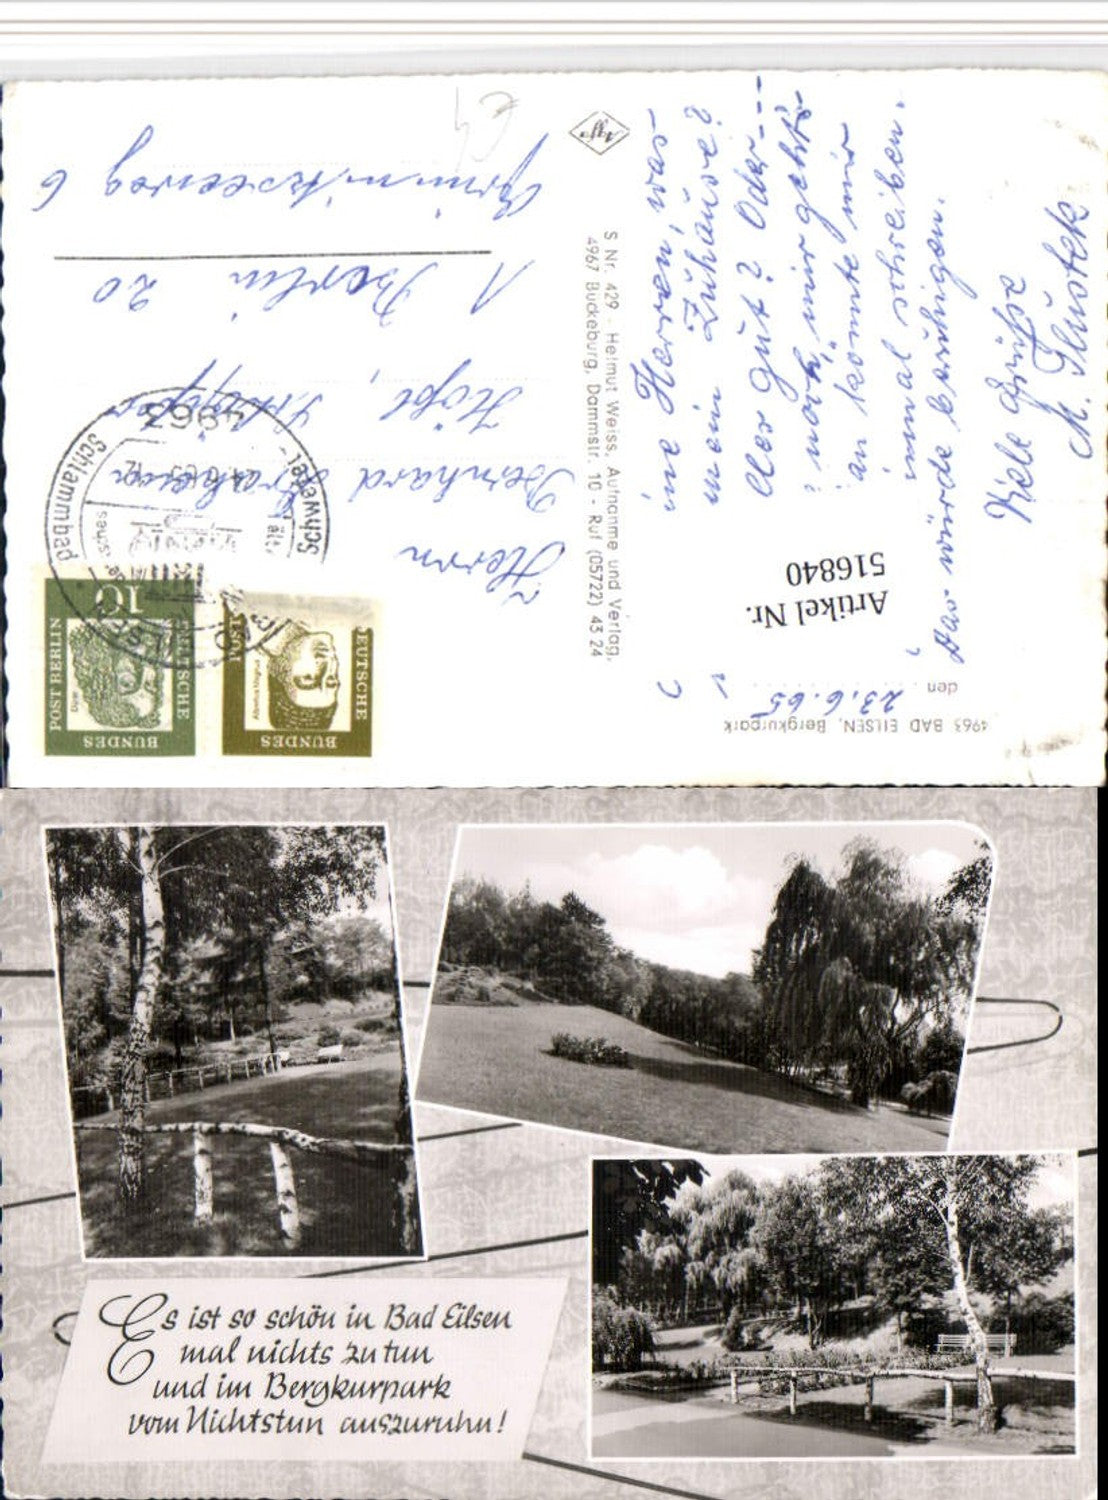 4963 BAD EILSEN, Bergkurpark
den 23.6.65
Artikel Nr.
516840
ine Herren, was
mein Zuhause?
lles gut? Oder---
noch, mir geht's
an könnte mir
inmal schreiben.
Das würde beruhigen.
Viele Grüße
S Nr. 429 - Helmut Weiss, Aufnahme und Verlag,
4967 Bückeburg, Dammstr. 10 - Ruf (05722) 43 24
Agfa
Herrn
Bernhard
1 Berlin 20
6
DEUTSCHE
BUNDES
POST
Albertus Magnus
DEUTSCHE
BUNDES
POST BERLIN
10
Dürer
4963
Schwefel-
Schlammbad
Es ist so schön in Bad Eilsen
mal nichts zu tun
und im Bergkurpark
vom Nichtstun auszuruhn!